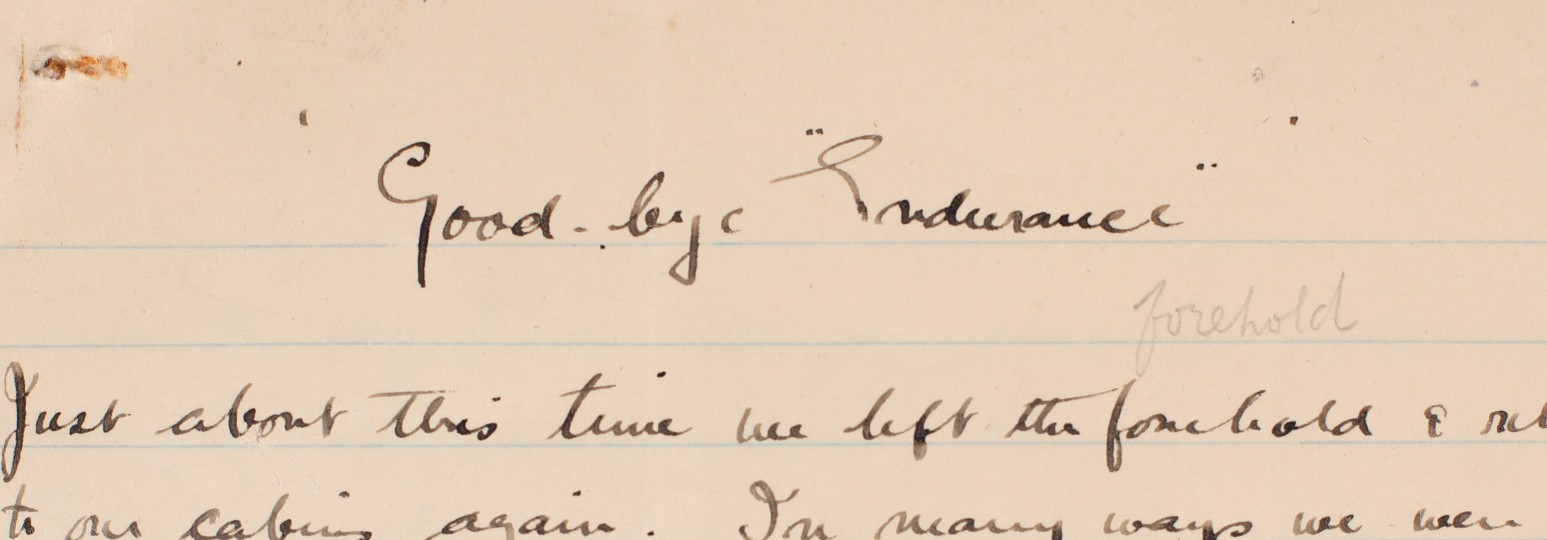 Good-bye "Endurance"
forehold
Just about this time we left the forehold &
to our cabins again. In many ways we were